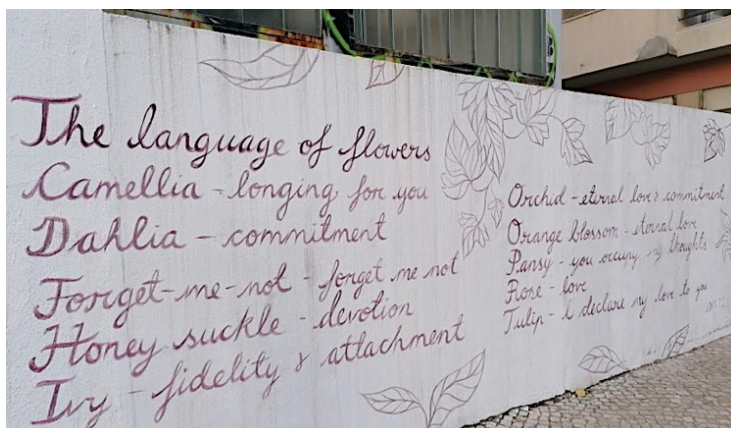 The language of flowers
Camellia - longing for you
Dahlia - commitment
Forget-me-not - forget me not
Honey suckle - devotion
Ivy - fidelity & attachment
Orchid - eternal love & commitment
Orange blossom - eternal love
Pansy - you occupy my thoughts
Rose - love
Tulip - I declare my love to you